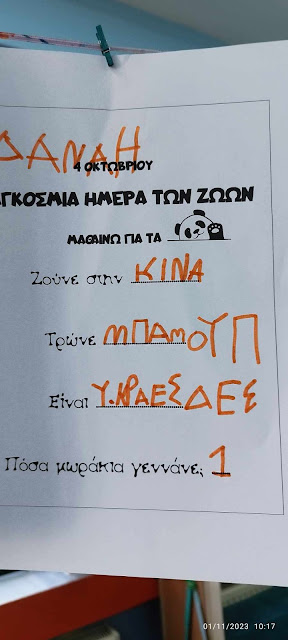 ΔΑΝΑΗ
4 ΟΚΤΩΒΡΙΟΥ
ΓΚΟΣΜΙΑ ΗΜΕΡΑ ΤΩΝ ΖΩΩΝ
ΜΑΘΑΙΝΩ ΓΙΑ ΤΑ
Ζούνε στην ΚΙΝΑ
Τρώνε ΜΠΑΜΟΥΠ
Είναι
Πόσα μωράκια γεννάνε; 1
01/11/2023 10:17